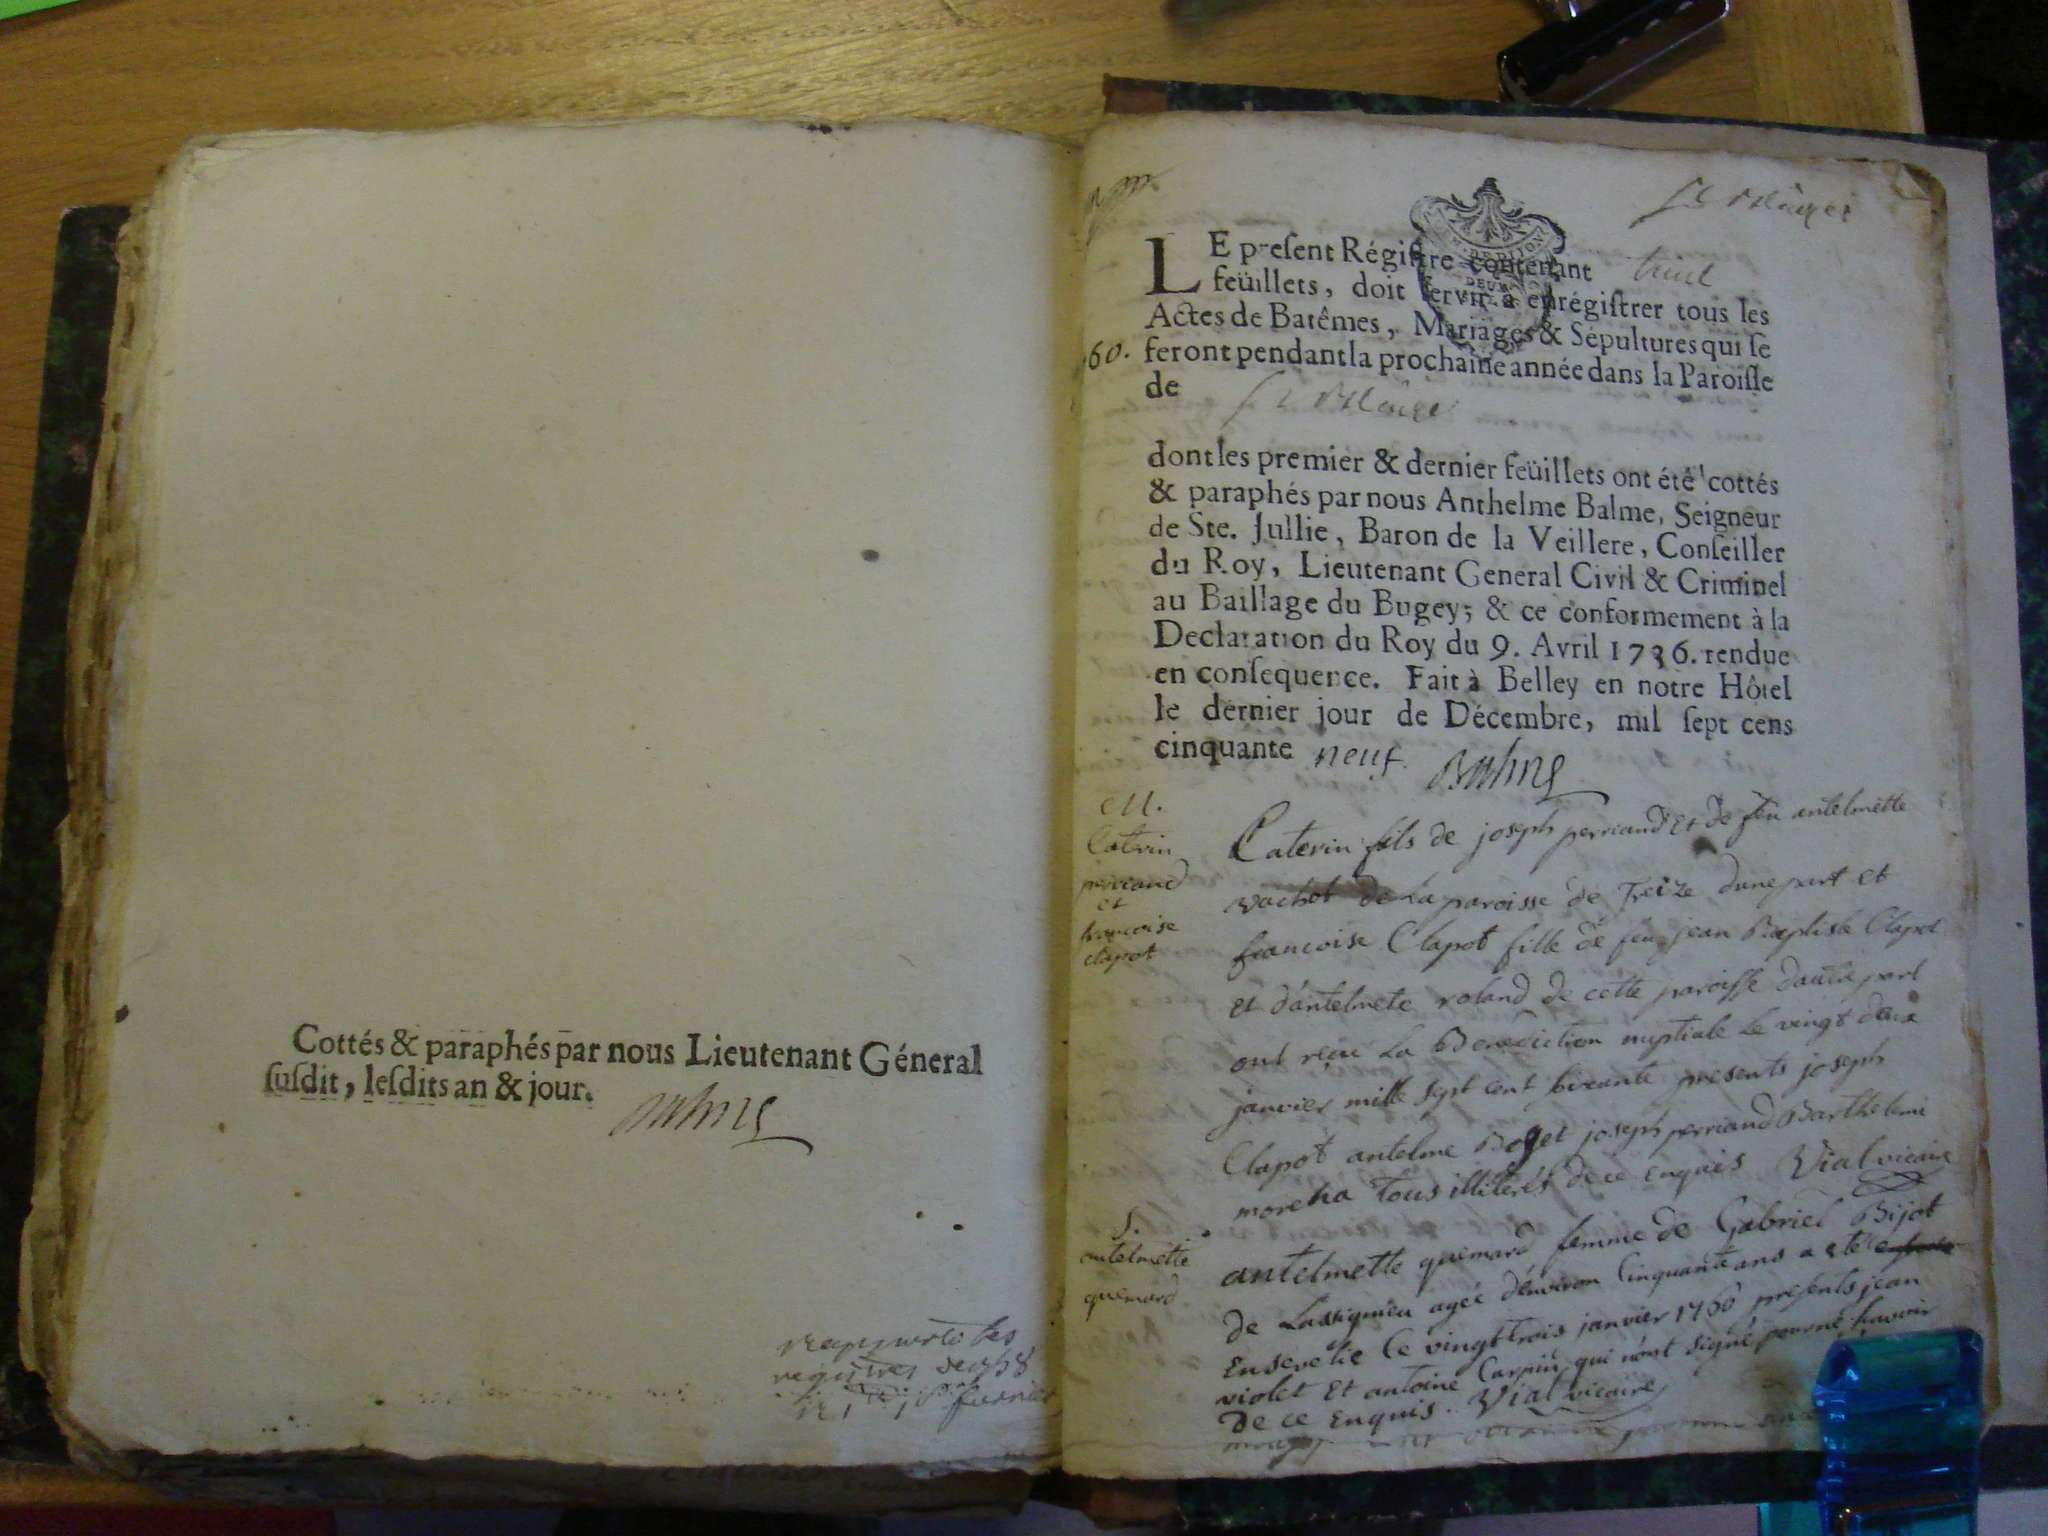 Cottés & paraphés par nous Lieutenant Géneral
ſuſdit, leſdits an & jour.
registres
60.
LE preſent Régiſtre contenant
feüillets, doit ſervir à enrégiſtrer tous les
Actes de Batêmes, Mariages & Sépultures qui ſe
feront pendant la prochaine année dans la Paroiſſe
de
dont les premier & dernier feüillets ont été cottés
& paraphés par nous Anthelme Balme, Seigneur
de Ste. Jullie, Baron de la Veillere, Conſeiller
du Roy, Lieutenant General Civil & Criminel
au Baillage du Bugey; & ce conformement à la
Declaration du Roy du 9. Avril 1736. rendue
en conſequence. Fait à Belley en notre Hôtel
le dernier jour de Décembre, mil ſept cens
cinquante neuf. Balme
M.
Catrin
perriand
et
francoise
clapot
Caterin fils de joseph perriand et de feu antelmette
vachot de la paroisse de Treize dune part et
francoise Clapot fille de feu jean Baptiste Clapot
et d'antelmete roland de cette paroisse dautre part
ont reçue la Benediction nuptiale le vingt deux
janvier mille sept cent soixante presents joseph
Clapot antelme Boget joseph perriand Barthelemi
tous illiterés de ce enquis Vial vicaire
S.
antelmette
quemard
antelmette quemard femme de Gabriel Bijot
de Lassignieu agée d'environ Cinquante ans a eté
Ensevelie le vingt trois janvier 1760 presents jean
violet et antoine Carpin qui nont signé pour ne scavoir
de ce Enquis. Vial vicaire